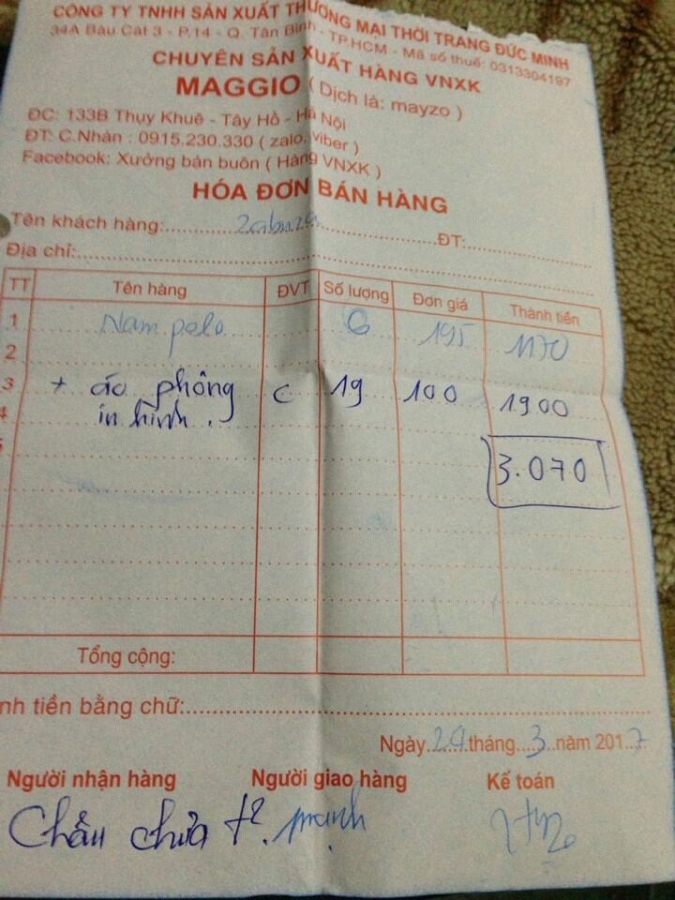 CÔNG TY TNHH SẢN XUẤT THƯƠNG MẠI THỜI TRANG ĐỨC MINH
34A Bàu Cát 3 - P.14 - Q. Tân Bình - TP.HCM - Mã số thuế: 0313304197
CHUYÊN SẢN XUẤT HÀNG VNXK
MAGGIO ( Dịch là: mayzo )
ĐC: 133B Thụy Khuê - Tây Hồ - Hà Nội
ĐT: C.Nhàn : 0915.230.330 ( zalo, viber )
Facebook: Xưởng bán buôn ( Hàng VNXK )
HÓA ĐƠN BÁN HÀNG
Tên khách hàng: ĐT:
Địa chỉ:
TT Tên hàng ĐVT Số lượng Đơn giá Thành tiền
1 Nam polo 6 195 1170
2
3 + áo phông C 19 100 1900
4 in hình.
3.070
Tổng cộng:
nh tiền bằng chữ:
Ngày 29 tháng 3 năm 2017
Người nhận hàng Người giao hàng Kế toán
Cháu chưa